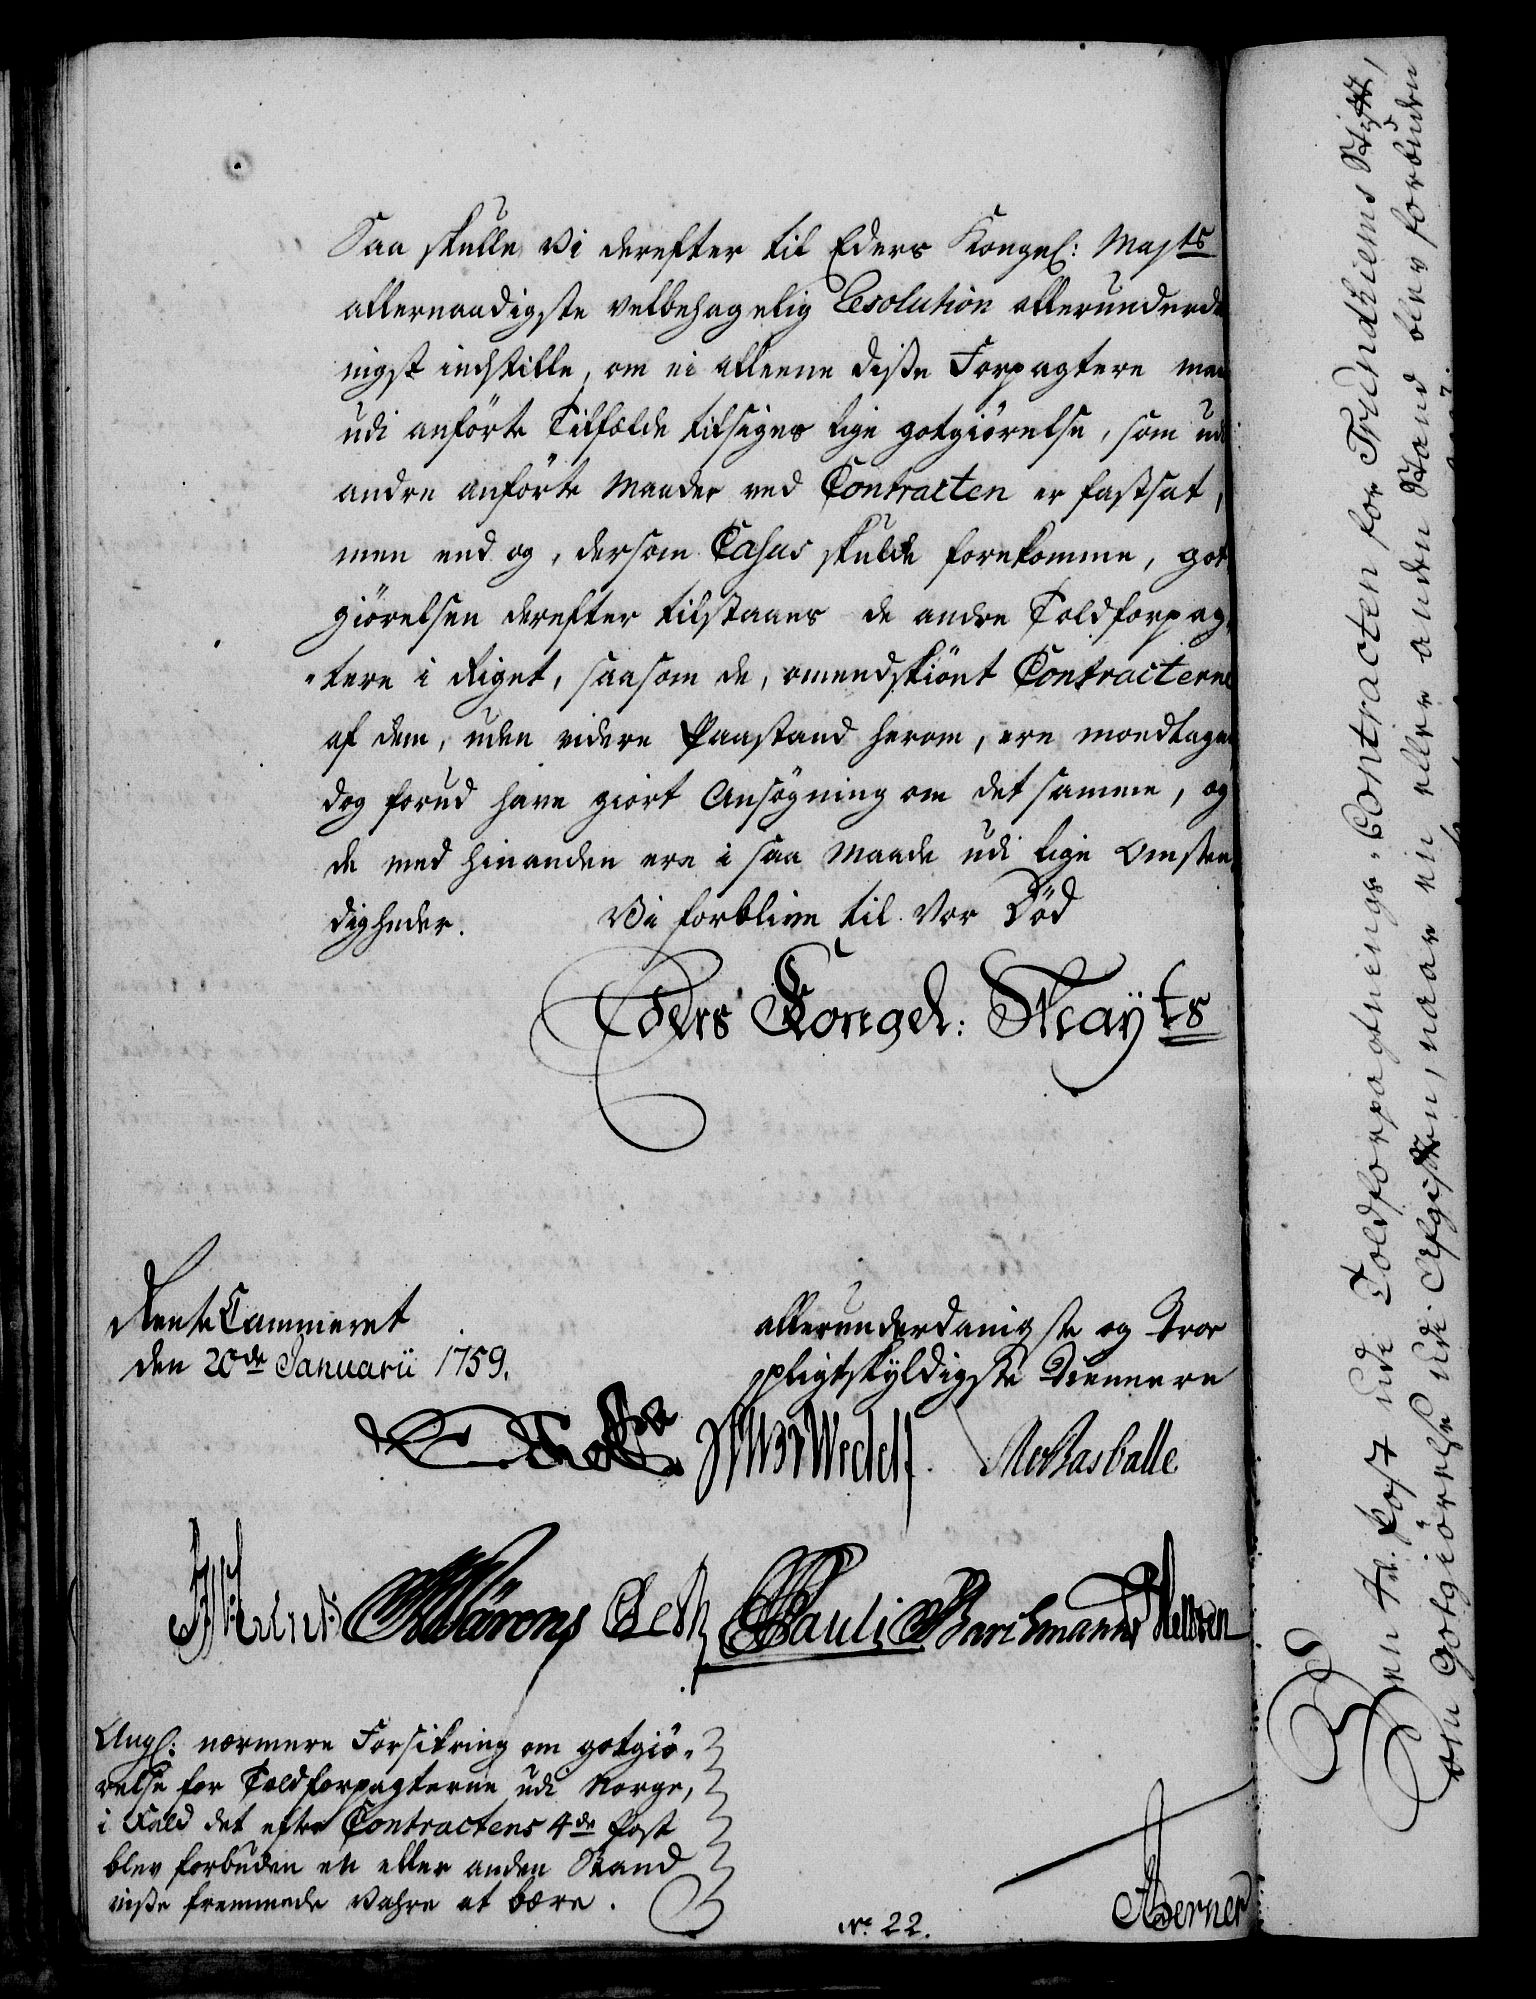 Saa skulle Vi derefter til Eders Kongel: Mayts
allernaadigste velbehagelig Resolution allerunderda
nigst indstille, om ei alleene disse Forpagtere maae
udi anførte Tilfælde tilsiges lige godtgiørelse, som udi
andre anførte Maader ved Contracten er fastsat,
men end og, dersom Casus skulde forekomme, got
giørelsen derefter tilstaaes de andre Toldforpag,
"tere i Riget, saasom de, omendskiønt Contracterne
af dem, uden videre Paastand herom, ere modtagne
dog forud have giort Ansøgning om det samme, og
de med hinanden ere i saa Maade udi lige Omsten
digheder. Vi forblive til Vor Død
Eders Kongel: Mayts
Rente Cammeret
den 20de Januarii 1759.
allerunderdanigste og Troe
pligtskyldigste Tiennere
Wedell
Barchmann
Pauli
Angl: nærmere Forsikring om gotgiø,
relse for Toldforpagterne udi Norge,
i Fald det efter Contractens 4de Post
blev forbuden en eller anden Stand
visse fremmede Vahre at bære.
No 22.
Berner
Den 4de Post udi Toldforpagtnings-Contracten for Trundhiems Stift,
om Gotgiørelse udi Afgiften, naar en eller anden Stand blev forbuden